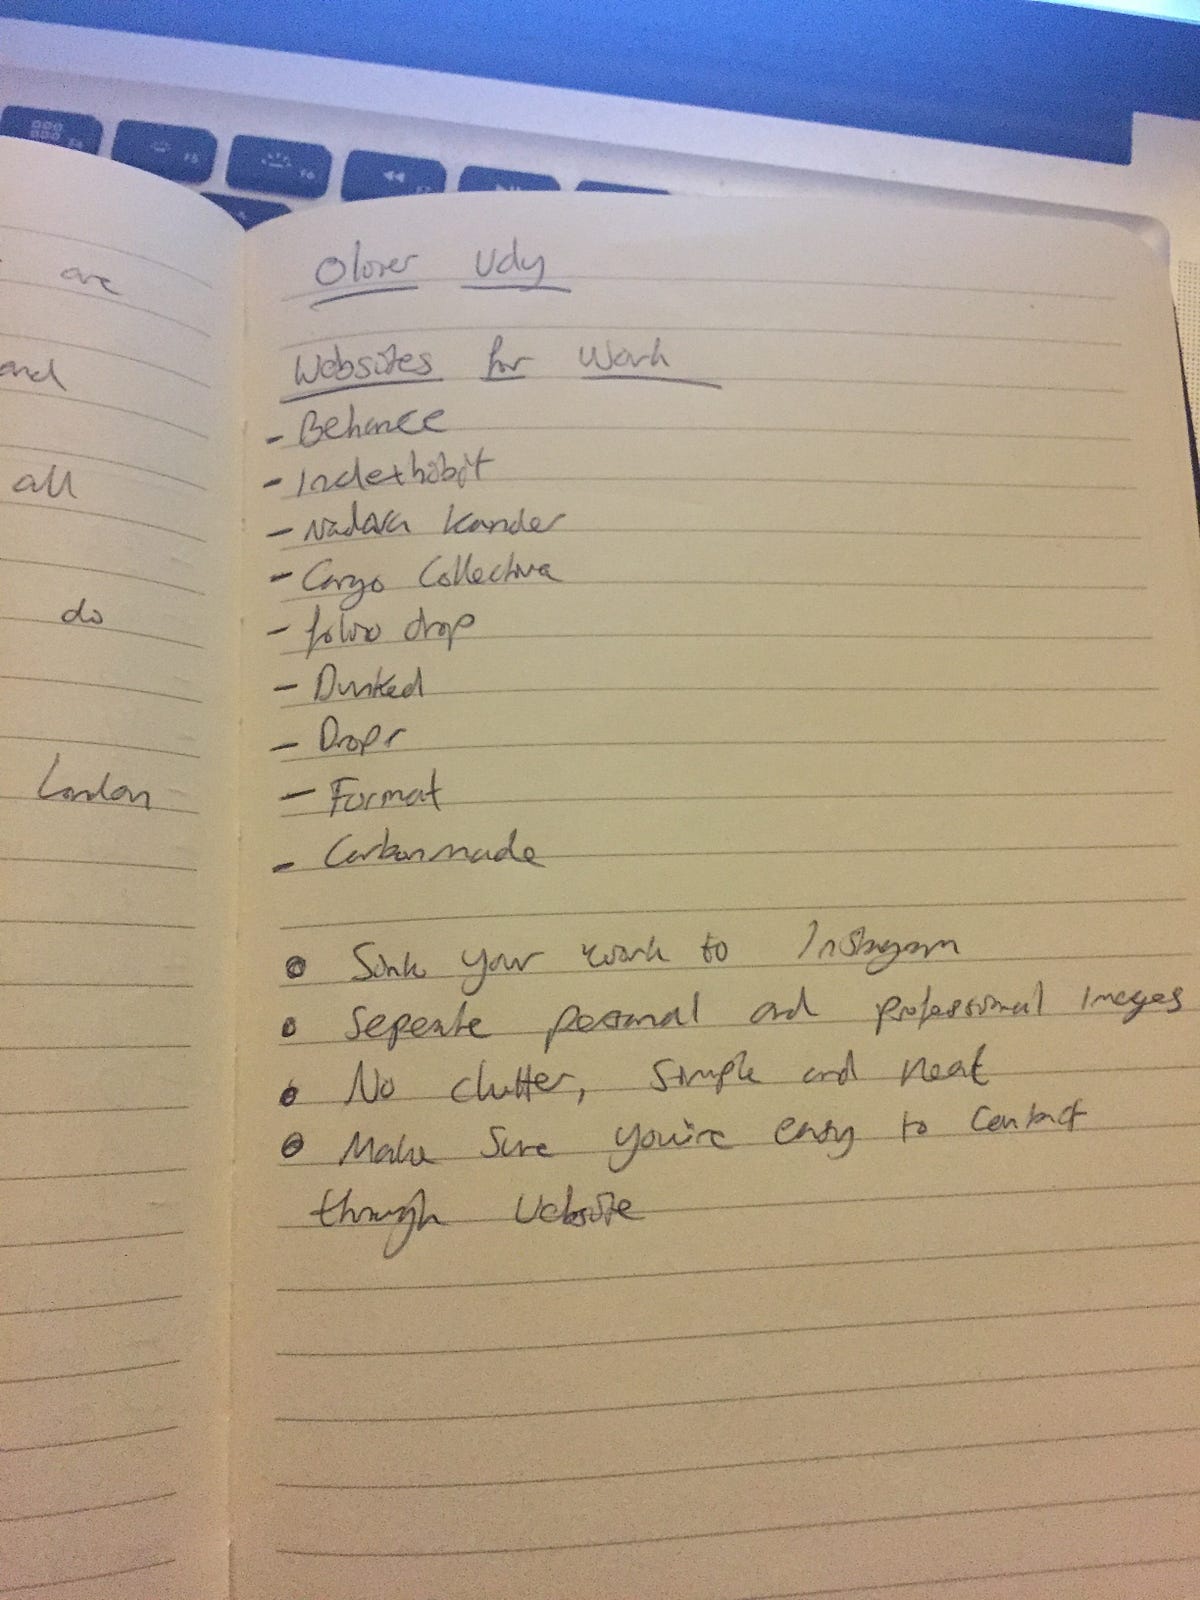 are
and
all
do
London
Oliver Udy
Websites for Work
- Behance
- Indexhibit
- Nadav Kander
- Cargo Collective
- folio drop
- Dunked
- Dropr
- Format
- Carbonmade
• Sink your work to Instagram
• Seperate personal and professional images
• No clutter, simple and neat
• Make sure you're easy to contact
through website
F5
F6
F7